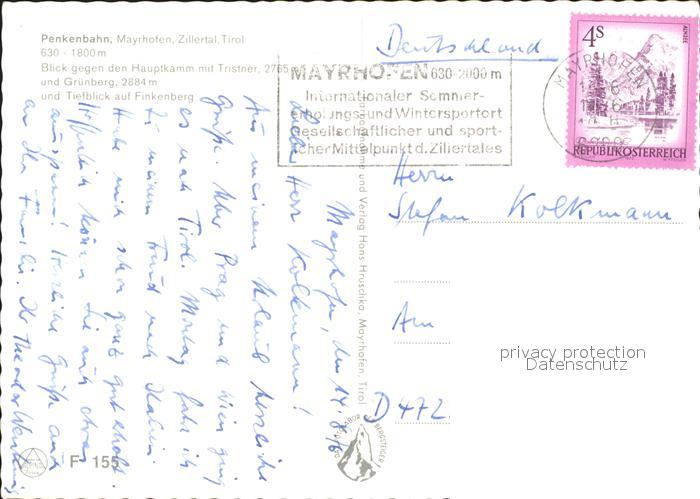 Penkenbahn, Mayrhofen, Zillertal, Tirol
630 - 1800 m
Blick gegen den Hauptkamm mit Tristner, 2765 m
und Grünberg, 2884 m
und Tiefblick auf Finkenberg
Deutschland
MAYRHOFEN 630-2000 m
Internationaler Sommer-
erholungs- und Wintersportort
Gesellschaftlicher und sport-
licher Mittelpunkt d. Zillertales
4S
MAYRHOFEN
REPUBLIK ÖSTERREICH
Mayrhofen, den 14.8.76
Lieber Herr Kolkmann!
Aus meinem Urlaub herzliche
Grüße. Über Prag und Wien ging
es nach Tirol. Montag fahre ich
zu meinem Freund nach Italien.
Habe mich schon ganz gut erholt.
Hoffentlich können Sie auch etwas
ausspannen! Herzliche Grüße auch
an Ihre Familie. Ihr Theodor
und Verlag Hans Hruschka, Mayrhofen, Tirol
Herrn
Stefan Kolkmann
Am
D 472
privacy protection
Datenschutz
BERGSTEIGER
F 155